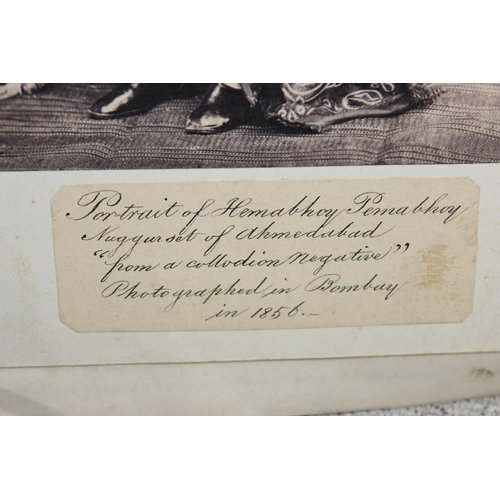 Portrait of Hemabhoy Pemabhoy
Nuggurset of Ahmedabad
"from a collodion Negative"
Photographed in Bombay
in 1856.-